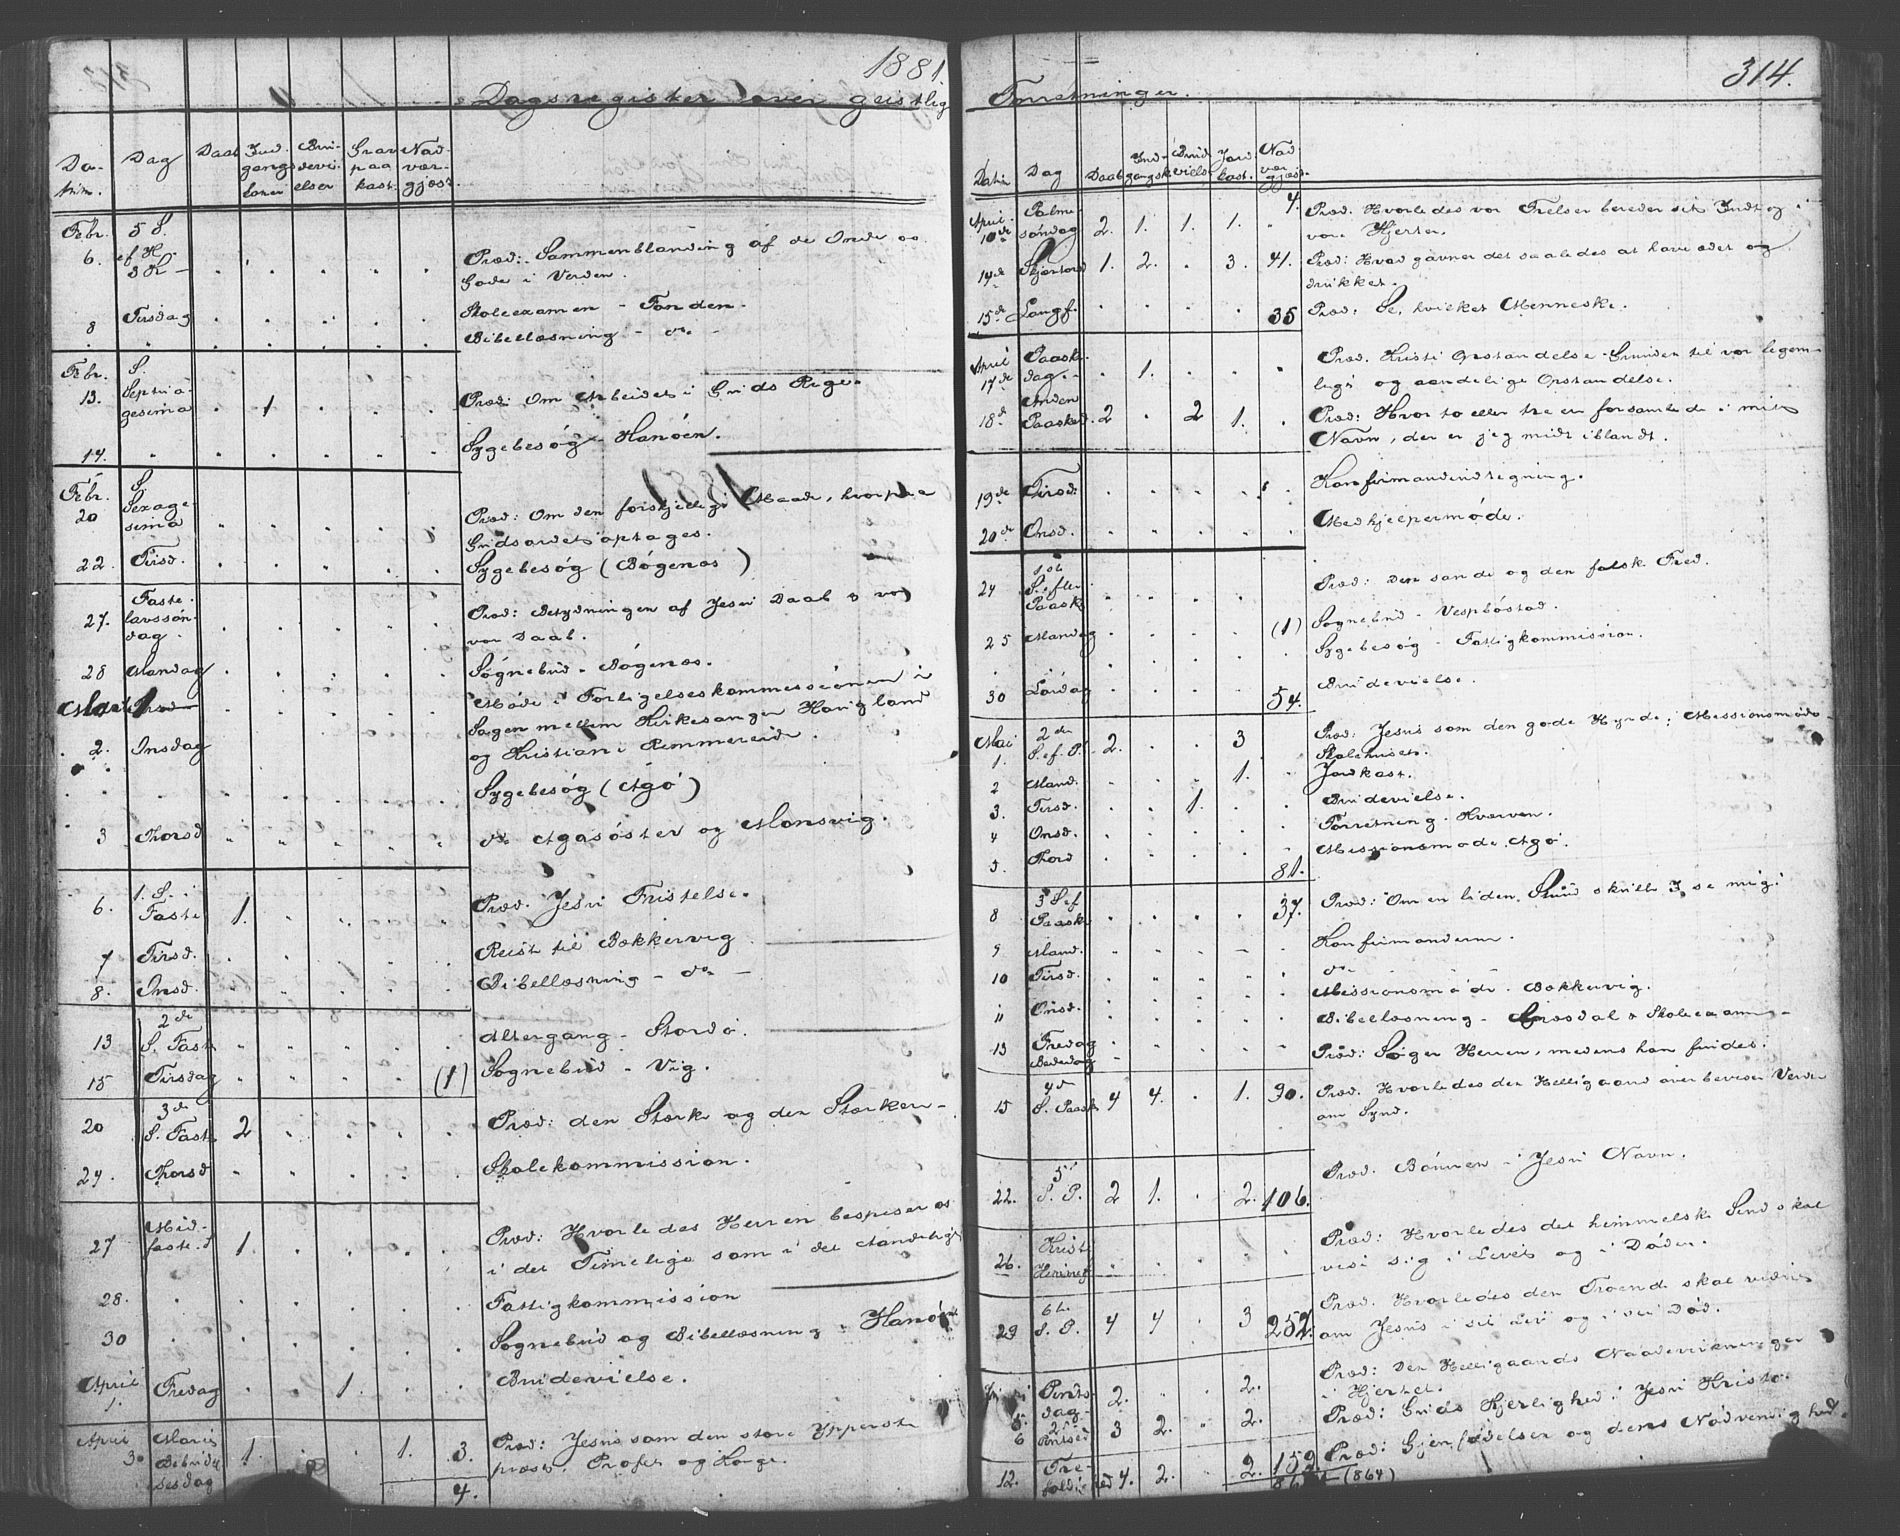 1881.
Dagsregister over geistlig
Da-
tum.
Dag
Daab
Ind-
gangs
koner
Bru-
devi-
elser
Grav
paa
kast.
Nad-
vær-
gjæst.
Febr. 5 S.
6. ef H. 3 K — Præd: Sammenblanding af de Onde og
Gode i Verden.
8 Tirsdag Skoleexamen - Fonden.
Bibellæsning - do -
Febr. S.
13. Septua-
gesima 1 Præd: Om Arbeidet i Guds Rige.
14. Sygebesøg - Hanøen.
Febr. S.
20 Sexage-
sima Præd: Om den forskjellige Maade, hvorpaa
Gudsordet optages.
22. Tirsd. Sygebesøg (Bøgenæs)
27. Faste-
lavssøn-
dag Præd: Betydningen af Jesu Daab &
vor Daab.
28 Mandag Søgnebud - Bøgenæs.
Marts 1
Møde i Forligelseskommissionen i
Sagen mellem Kirkesanger Haugland
2. Onsdag og Kristian Remmereide.
Sygebesøg (Agø)
3 Thorsd do Agasøster og Monsvig.
6. 1. S. i
Faste 1. Præd. Jesu Fristelse.
7 Tirsd. Reist til Bækkervig
8. Onsd. Bibellæsning - do -
13 2de
S. Faste Altergang - Stordø.
15 Tirsdag (1) Sognebud - Vig.
20 3de
S. Faste 2 Præd: den Stærke og den Stærkere -
24. Thorsd Skolekommission.
27 Mid-
faste S 1. Præd: Hvorledes Herren bespiser os
i det Timelige som i det Aandelige
28. Fattigkommission
30 Sognebud og Bibellæsning - Hanøen
April
1. Fredag 1. Brudevielse.
April Mariæ
Bebudel-
sesdag 1. 1. 3. Præd: Jesus som den store Ypperste
præst, Profet og Konge.
4.
314.
Forretninger.
Datum
Dag
Daab
Ind-
gangsk
Brud
viels
Jord
kast.
Nad
vær
gjæst.
4.
April
10de Palme-
søndag 2. 1. 1. 1. Præd: Hvorledes vor Frelser bereder sit Indtog i
vore Hjerter.
14de Skjærtorsd 1. 2. 3. 41. Præd: Hvad gavner det saaledes at have ædet og
drukket.
15de Langf. 35 Præd: Se, hvilket Menneske.
April
17de Paaske-
dag. 1. Præd. Kristi Opstandelse Grunden til vor legem-
lige og aandelige Opstandelse.
18d Anden
Paasked. 2 2 1. Præd: Hvor to eller tre er forsamlede i mit
Navn, der er jeg midt iblandt.
19de Tirsd: Konfirmandindtegning.
20de Onsd. Medhjælpermøde.
24 1ste
S. efter
Paaske Præd: Den sande og den falske Fred.
25 Mandag (1) Sognebud - Vespbøstad.
Sygebesøg - Fattigkommission.
30 Lørdag 54. Brudevielse.
Mai
1. 2den
S. ef. P. 2. 3 Præd: Jesus som den gode Hyrde; Missionsmøde
Skolehuset.
2 Mand. 1. Jordkast.
3. Tirsd. 1. Brudevielse.
4 Onsd. Forretning. Hværven.
5. Thord 81. Missionsmøde. Agø.
8 3 S ef
Paaske 37. Præd: Om en liden Stund skulle I se mig.
9 Mand. Konfirmanderne.
10 Tirsd. do
11 Onsd. Missionsmøde. Bækkervig.
Bibellæsning - & Skoleexamen -
13 Fredag
Bededag Præd: Søger Herren, medens han findes.
15 4de
S. Paaske 4 4. 1. 30. Præd. Hvorledes den Helligaand overbeviser Verden
om Synd.
22. 5te
S. P. 2 1. 2. 106. Præd. Bønnen i Jesu Navn.
26. Kristi
Himmelf Præd: Hvorledes det himmelske Sind skal
vise sig i Livet og i Døden.
29 6te
S. P. 4 4 3 252. Præd. Hvorledes den Troende skal vidne
om Jesus i sit Liv og i sin Død.
Juni
5. Pints-
dag 2. 2. Præd: Den Helligaands Naadevirkninger
i Hjertet.
6 2.
Pintsed 3 2. 2. Præd: Guds Kjærlighed i Jesu Kristo.
12. Tre-
foldighed 4. 2. 2. 152. Præd: Gjenfødelsen og dens Nødvendighed.
(864)